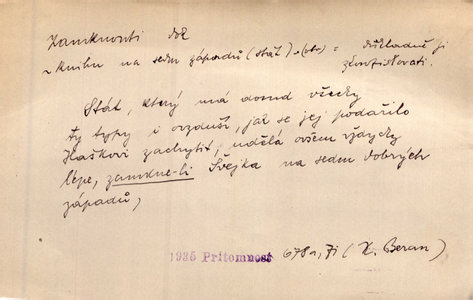 Zamknouti dok
~ knihu na sedm západů (stát) = důkladně ji
zkonfiskovati.
Stát, který má dosud všecky
ty typy i ovzduší, jak se jej podařilo
Haškovi zachytit, udělá ovšem vždycky
lépe, zamkne-li Švejka na sedm dobrých
západů,
1935 Prítomnost 678a, 7i (K. Beran)